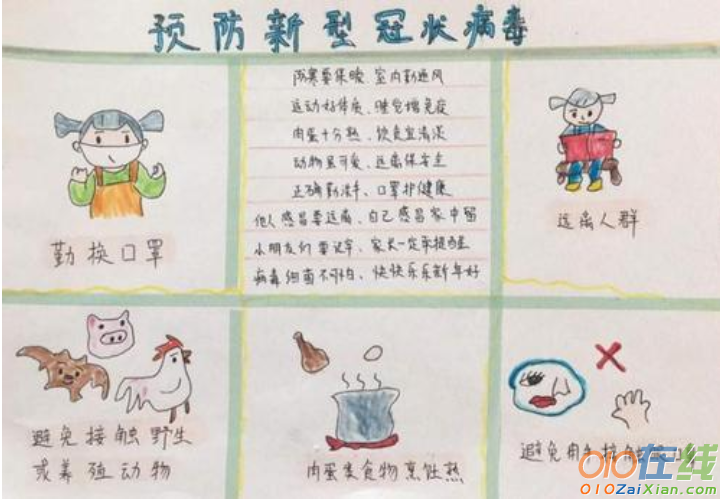 预防新型冠状病毒
防寒要保暖、室内勤通风
运动好体质、睡觉增免疫
肉蛋十分熟、饮食宜清淡
动物虽可爱、远离保安全
正确勤洗手、口罩护健康
他人感冒要远离、自己感冒家中留
小朋友们要记牢、家长一定来提醒
病毒细菌不可怕、快快乐乐新年好
勤换口罩
远离人群
避免接触野生
或养殖动物
肉蛋类食物烹饪熟
避免用手接触
010在线
010ZaiXian.com